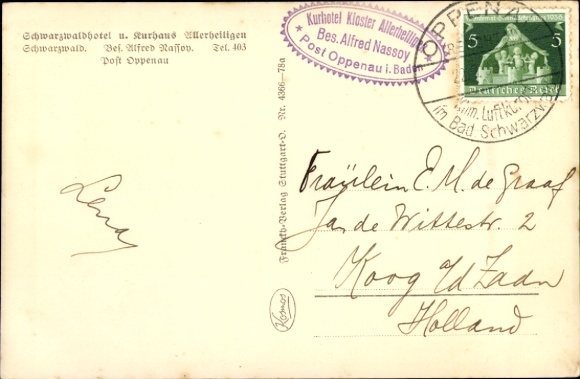 Schwarzwaldhotel u. Kurhaus Allerheiligen
Schwarzwald. Bes. Alfred Nassoy. Tel. 403
Post Oppenau
Lena
Franckh-Verlag Stuttgart-O. Nr. 4366-78a
Kosmos
Kurhotel Kloster Allerheiligen
Bes. Alfred Nassoy
Post Oppenau i. Baden
OPPENA
Luftkur
im Bad. Schwarzw
5 5
Deutsches Reich
Fräulein E. M. de Graaf
Jan de Wittestr. 2
Koog a/d Zaan
Holland